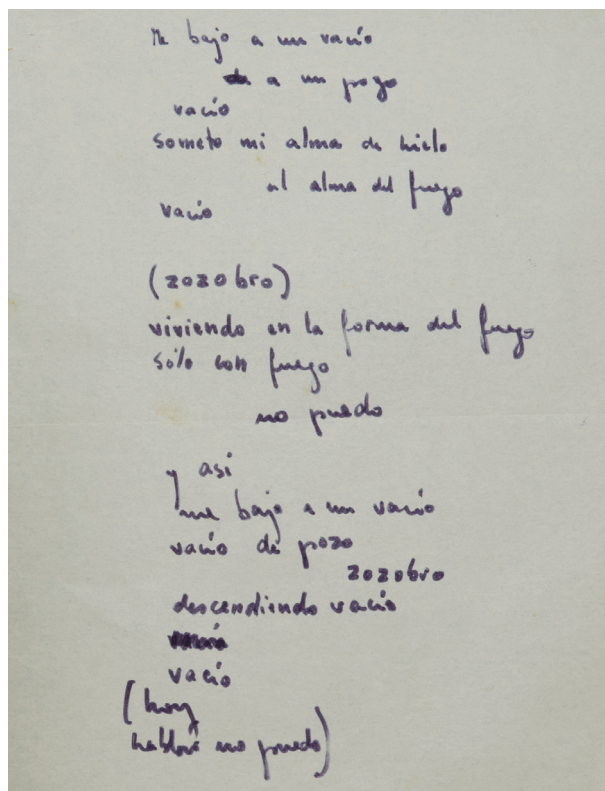 me bajo a un vacío
a un pozo
vacío
someto mi alma de hielo
al alma del fuego
vacío
(zozobro)
viviendo en la forma del fuego
sólo con fuego
no puedo
y así
me bajo a un vacío
vacío de pozo
zozobro
descendiendo vacío
vacío
(hoy
hablar no puedo)